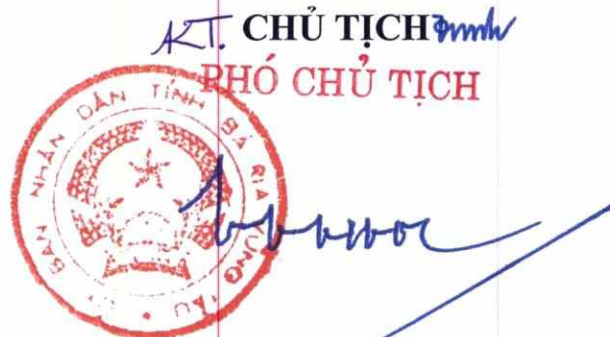 KT. CHỦ TỊCH
PHÓ CHỦ TỊCH
ỦY BAN NHÂN DÂN TỈNH BÀ RỊA VŨNG TÀU